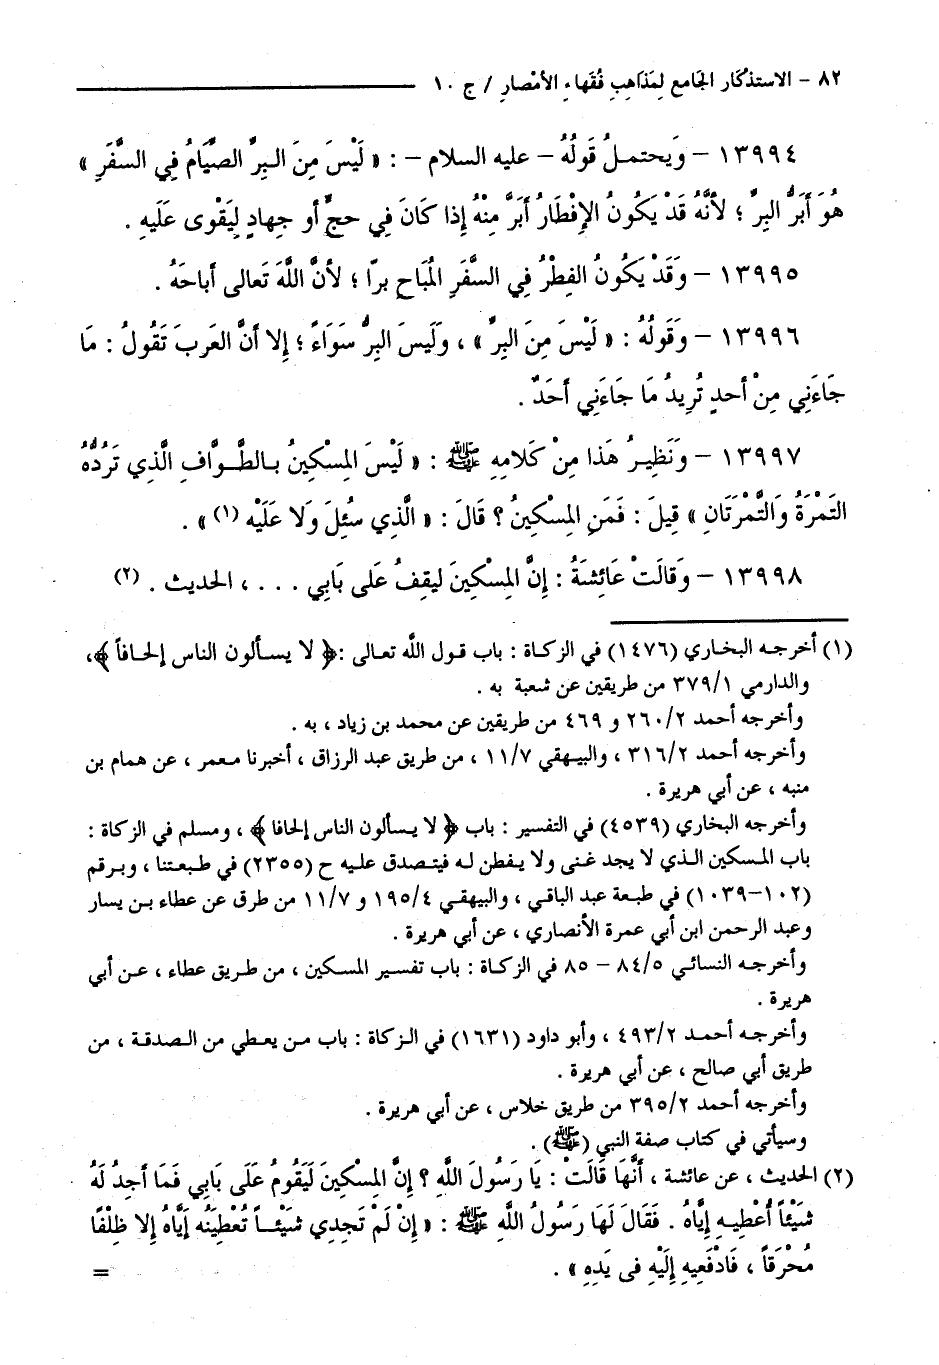 ٨٢ – الاستذكار الجامع لمِذَاهِبِ فُقَهاءِ الأمْصارِ / ج ١٠
١٣٩٩٤ – وَيحتمـلُ قَولُهُ – عليه السلام – : « لَيْسَ مِنَ البِرِّ الصِّيَامُ فِي السَّفَرِ »
هُوَ أَبَرُّ البِرِّ ؛ لأنَّهُ قَدْ يَكُونُ الإفْطَارُ أَبَرَّ مِنْهُ إذا كَانَ فِي حجٍّ أو جِهادٍ لِيَقْوى عَلَيهِ .
١٣٩٩٥ – وَقَدْ يَكُونُ الفِطْرُ فِي السَّفَرِ المُبَاحِ برّا ؛ لأنَّ اللَّهَ تَعالى أباحَهُ .
١٣٩٩٦ – وَقَولُهُ : « لَيْسَ مِنَ البِرِّ » ، وَلَيسَ البِرُّ سَوَاءً ؛ إِلا أنَّ العَربَ تَقُولُ : مَا
جَاءَنِي مِنْ أحدٍ تُرِيدُ مَا جَاءَنِي أحَدٌ .
١٣٩٩٧ – وَنَظِيرُ هَذا مِنْ كَلامِهِ ﷺ : « لَيْسَ المِسْكِينُ بالطَّوَّافِ الَّذِي تَرُدُّهُ
التَمْرَةُ وَالتَّمْرَتَانِ » قِيلَ : فَمَنِ المِسْكِينُ ؟ قَالَ : « الَّذِي سُئِلَ وَلا عَلَيْه (١) » .
١٣٩٩٨ – وَقالَتْ عَائِشَةُ : إنَّ المِسْكِينَ ليقِفُ عَلى بَابِي . . . ، الحديث . (٢)
(١) أخرجه البخاري (١٤٧٦) في الزكاة : باب قول اللَّه تعالى :﴿ لا يسألون الناس إلحافاً ﴾،
والدارمي ٣٧٩/١ من طريقين عن شعبة به .
وأخرجه أحمد ٢٦٠/٢ و ٤٦٩ من طريقين عن محمد بن زياد ، به .
وأخرجه أحمد ٣١٦/٢ ، والبيهقي ١١/٧ ، من طريق عبد الرزاق ، أخبرنا معمر ، عن همام بن
منبه ، عن أبي هريرة .
وأخرجه البخاري (٤٥٣٩) في التفسير : باب ﴿ لا يسألون الناس إلحافا ﴾ ، ومسلم في الزكاة :
باب المسكين الذي لا يجد غنى ولا يفطن له فيتصدق عليه ح (٢٣٥٥) في طبعتنا ، وبرقم
(١٠٢–١٠٣٩) في طبعة عبد الباقي ، والبيهقي ١٩٥/٤ و ١١/٧ من طرق عن عطاء بن يسار
وعبد الرحمن ابن أبي عمرة الأنصاري ، عن أبي هريرة .
وأخرجه النسائي ٨٤/٥ – ٨٥ في الزكاة : باب تفسير المسكين ، من طريق عطاء ، عن أبي
هريرة .
وأخرجه أحمد ٤٩٣/٢ ، وأبو داود (١٦٣١) في الزكاة : باب من يعطي من الصدقة ، من
طريق أبي صالح ، عن أبي هريرة .
وأخرجه أحمد ٣٩٥/٢ من طريق خلاس ، عن أبي هريرة .
وسيأتي في كتاب صفة النبي (ﷺ) .
(٢) الحديث ، عن عائشة ، أنَّهَا قَالَتْ : يَا رَسُولَ اللَّهِ ؟ إنَّ المِسْكِينَ لَيَقُومُ عَلَى بَابِي فَمَا أجِدُ لَهُ
شَيْئاً أُعْطِيهِ إيَّاهُ . فَقَالَ لَهَا رَسُولُ اللَّهِ ﷺ : « إنْ لَمْ تَجِدِي شَيْئاً تُعْطِيَنُه إيَّاهُ إلا ظِلْفًا
مُحْرَقاً ، فَادْفَعِيهِ إلَيْهِ فى يَدِهِ » . =